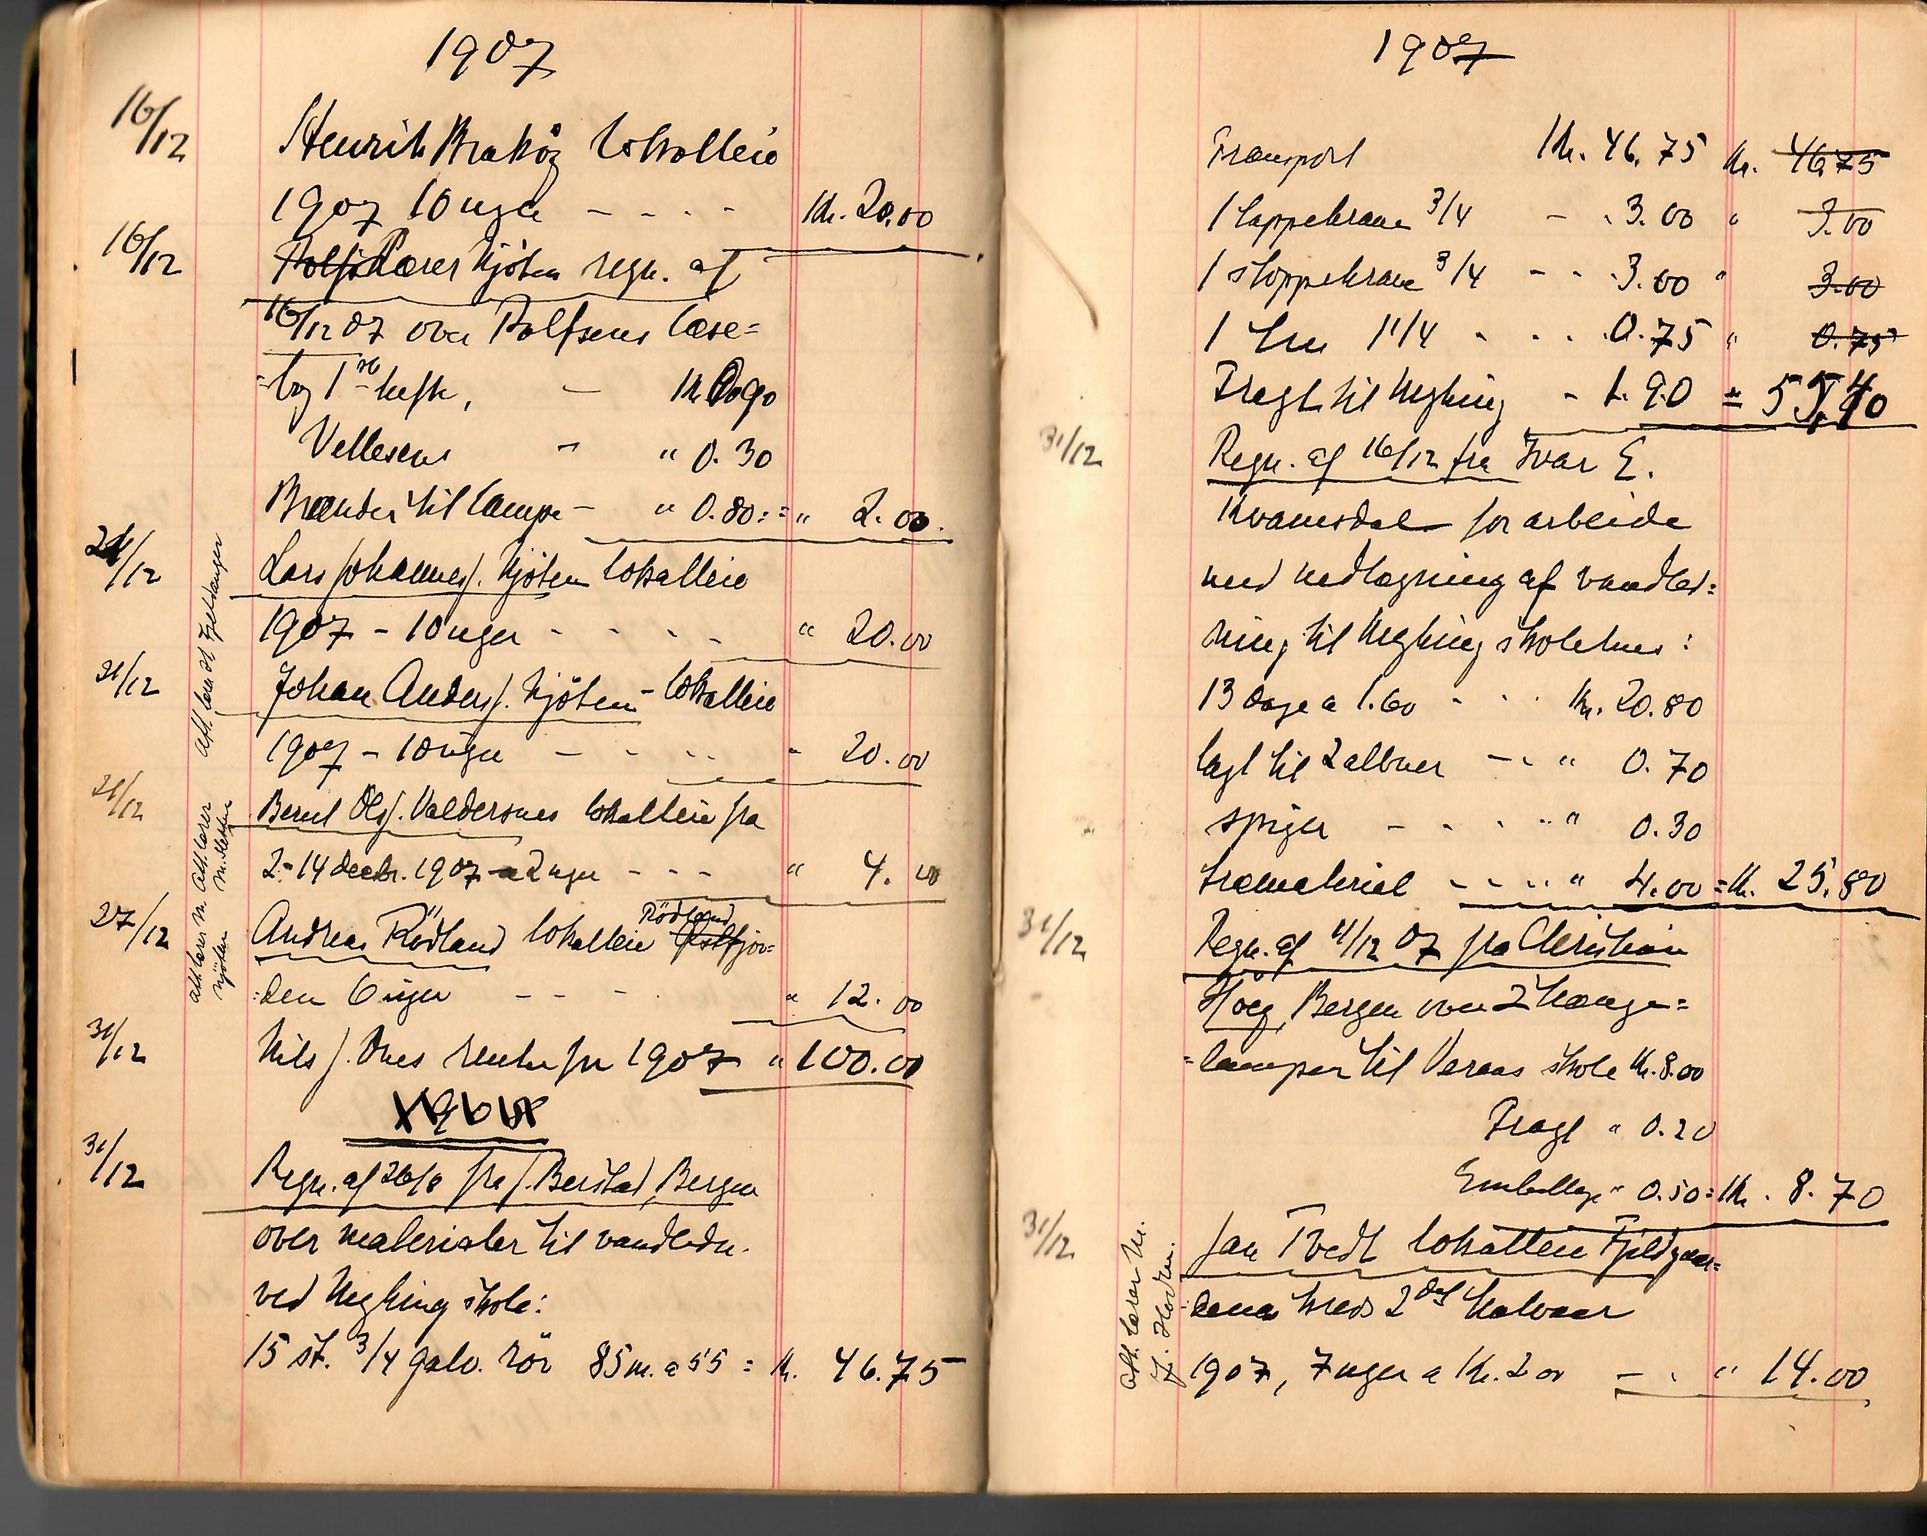 1907
16/12 Henrik Brakög lokalleie
1907 10 uger - - - - Kr. 20.00
16/12 Lærer Kjöten regn. af
16/12 07 over Rolfsens læse=
=bog 1ste hefte, - Kr 0.90
Vellesens " " 0.30
Brænder til lampe - " 0.80 : = " 2.00.
21/12 Lars Johannesf. Kjöten lokalleie
1907 - 10 uger - - - - " 20.00
21/12 Johan Andersf. Kjöten - lokalleie
1907 - 10 uger - - - - " 20.00
21/12 Bernt Olsf. Valdersnes lokalleie fra
2 - 14 decbr. 1907 - 2 uger - - - " 4.00
27/12 Andreas Rödland lokalleie Rödland
=den 6 uger - - - " 12.00
31/12 Nils J. Ones renter for 1907 " 100.00
31/12 Regn. af 26/8 fra J. Berstad, Bergen
over materialer til vandledn.
ved Kegling skole:
15 st. 3/4 galv. rör 85 m. a 55 = Kr. 46.75
att. lærer M. Kjöten
att. lærer
1907
Transport Kr. 46.75 Kr. 46.75
1 tappekrane 3/4 - " 3.00 " 3.00
1 stoppekrane 3/4 - - " 3.00 " 3.00
1 1 1/4 - - - 0.75 " 0.75
Fragt til - 1.90 = 55,40
31/12 Regn. af 16/12 fra Ivar E.
Kvamsdal for arbeide
med nedlægning af vandled=
ning til skolehus:
13 dage a 1.60 - - - Kr. 20.80
lagt til - - " 0.70
spiger - - - - " 0.30
træmaterial - - - - " 4.00 = Kr. 25.80
31/12 Regn. af 4/12 07 fra Christian
Höeg, Bergen over 2 hænge=
=lamper til Veraas skole Kr. 8.00
Fragt " 0.20
Emballage " 0.50 = Kr. 8.70
31/12 Jan Tvedt lokalleie
kreds 2det halvaar
1907, 7 uger a Kr. 2.00 - - " 14.00
att. lærer M.